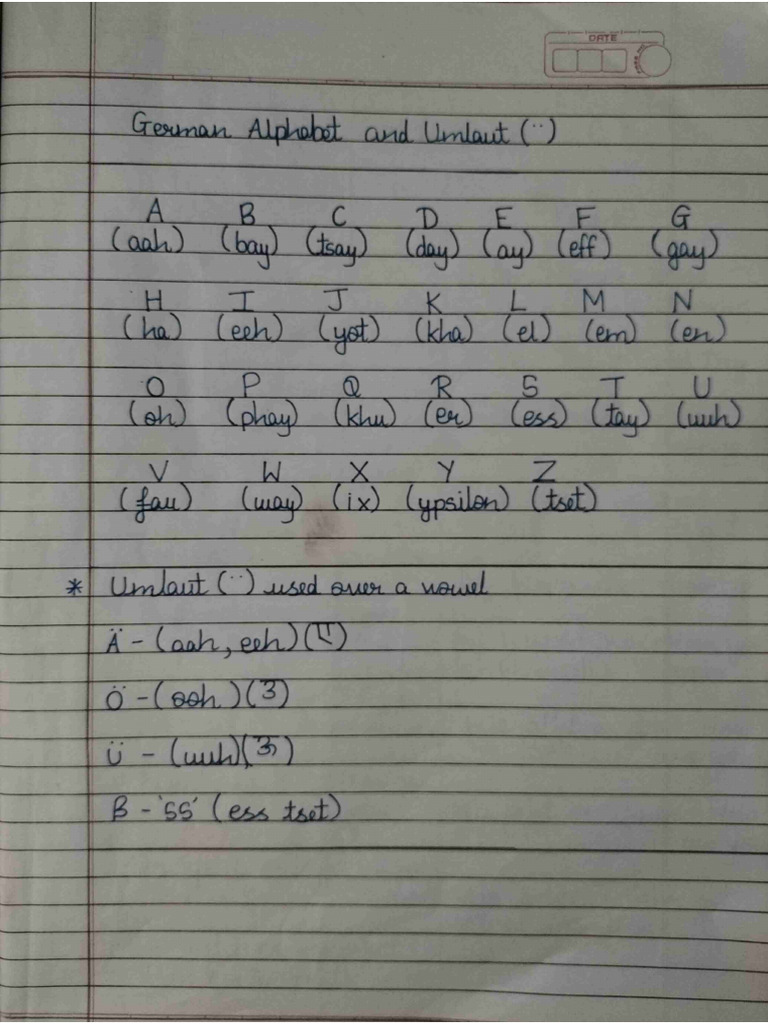 DATE
German Alphabet and Umlaut (¨)
A B C D E F G
(aah) (bay) (tsay) (day) (ay) (eff) (gay)
H I J K L M N
(ha) (eeh) (yot) (kha) (el) (em) (en)
O P Q R S T U
(oh) (phay) (khu) (er) (ess) (tay) (uuh)
V W X Y Z
(fau) (way) (ix) (ypsilon) (tset)
* Umlaut (¨) used over a vowel
Ä - (aah, eeh) (ए)
Ö - (ooh) (उ)
Ü - (uuh) (ऊ)
ß - 'ss' (ess tset)